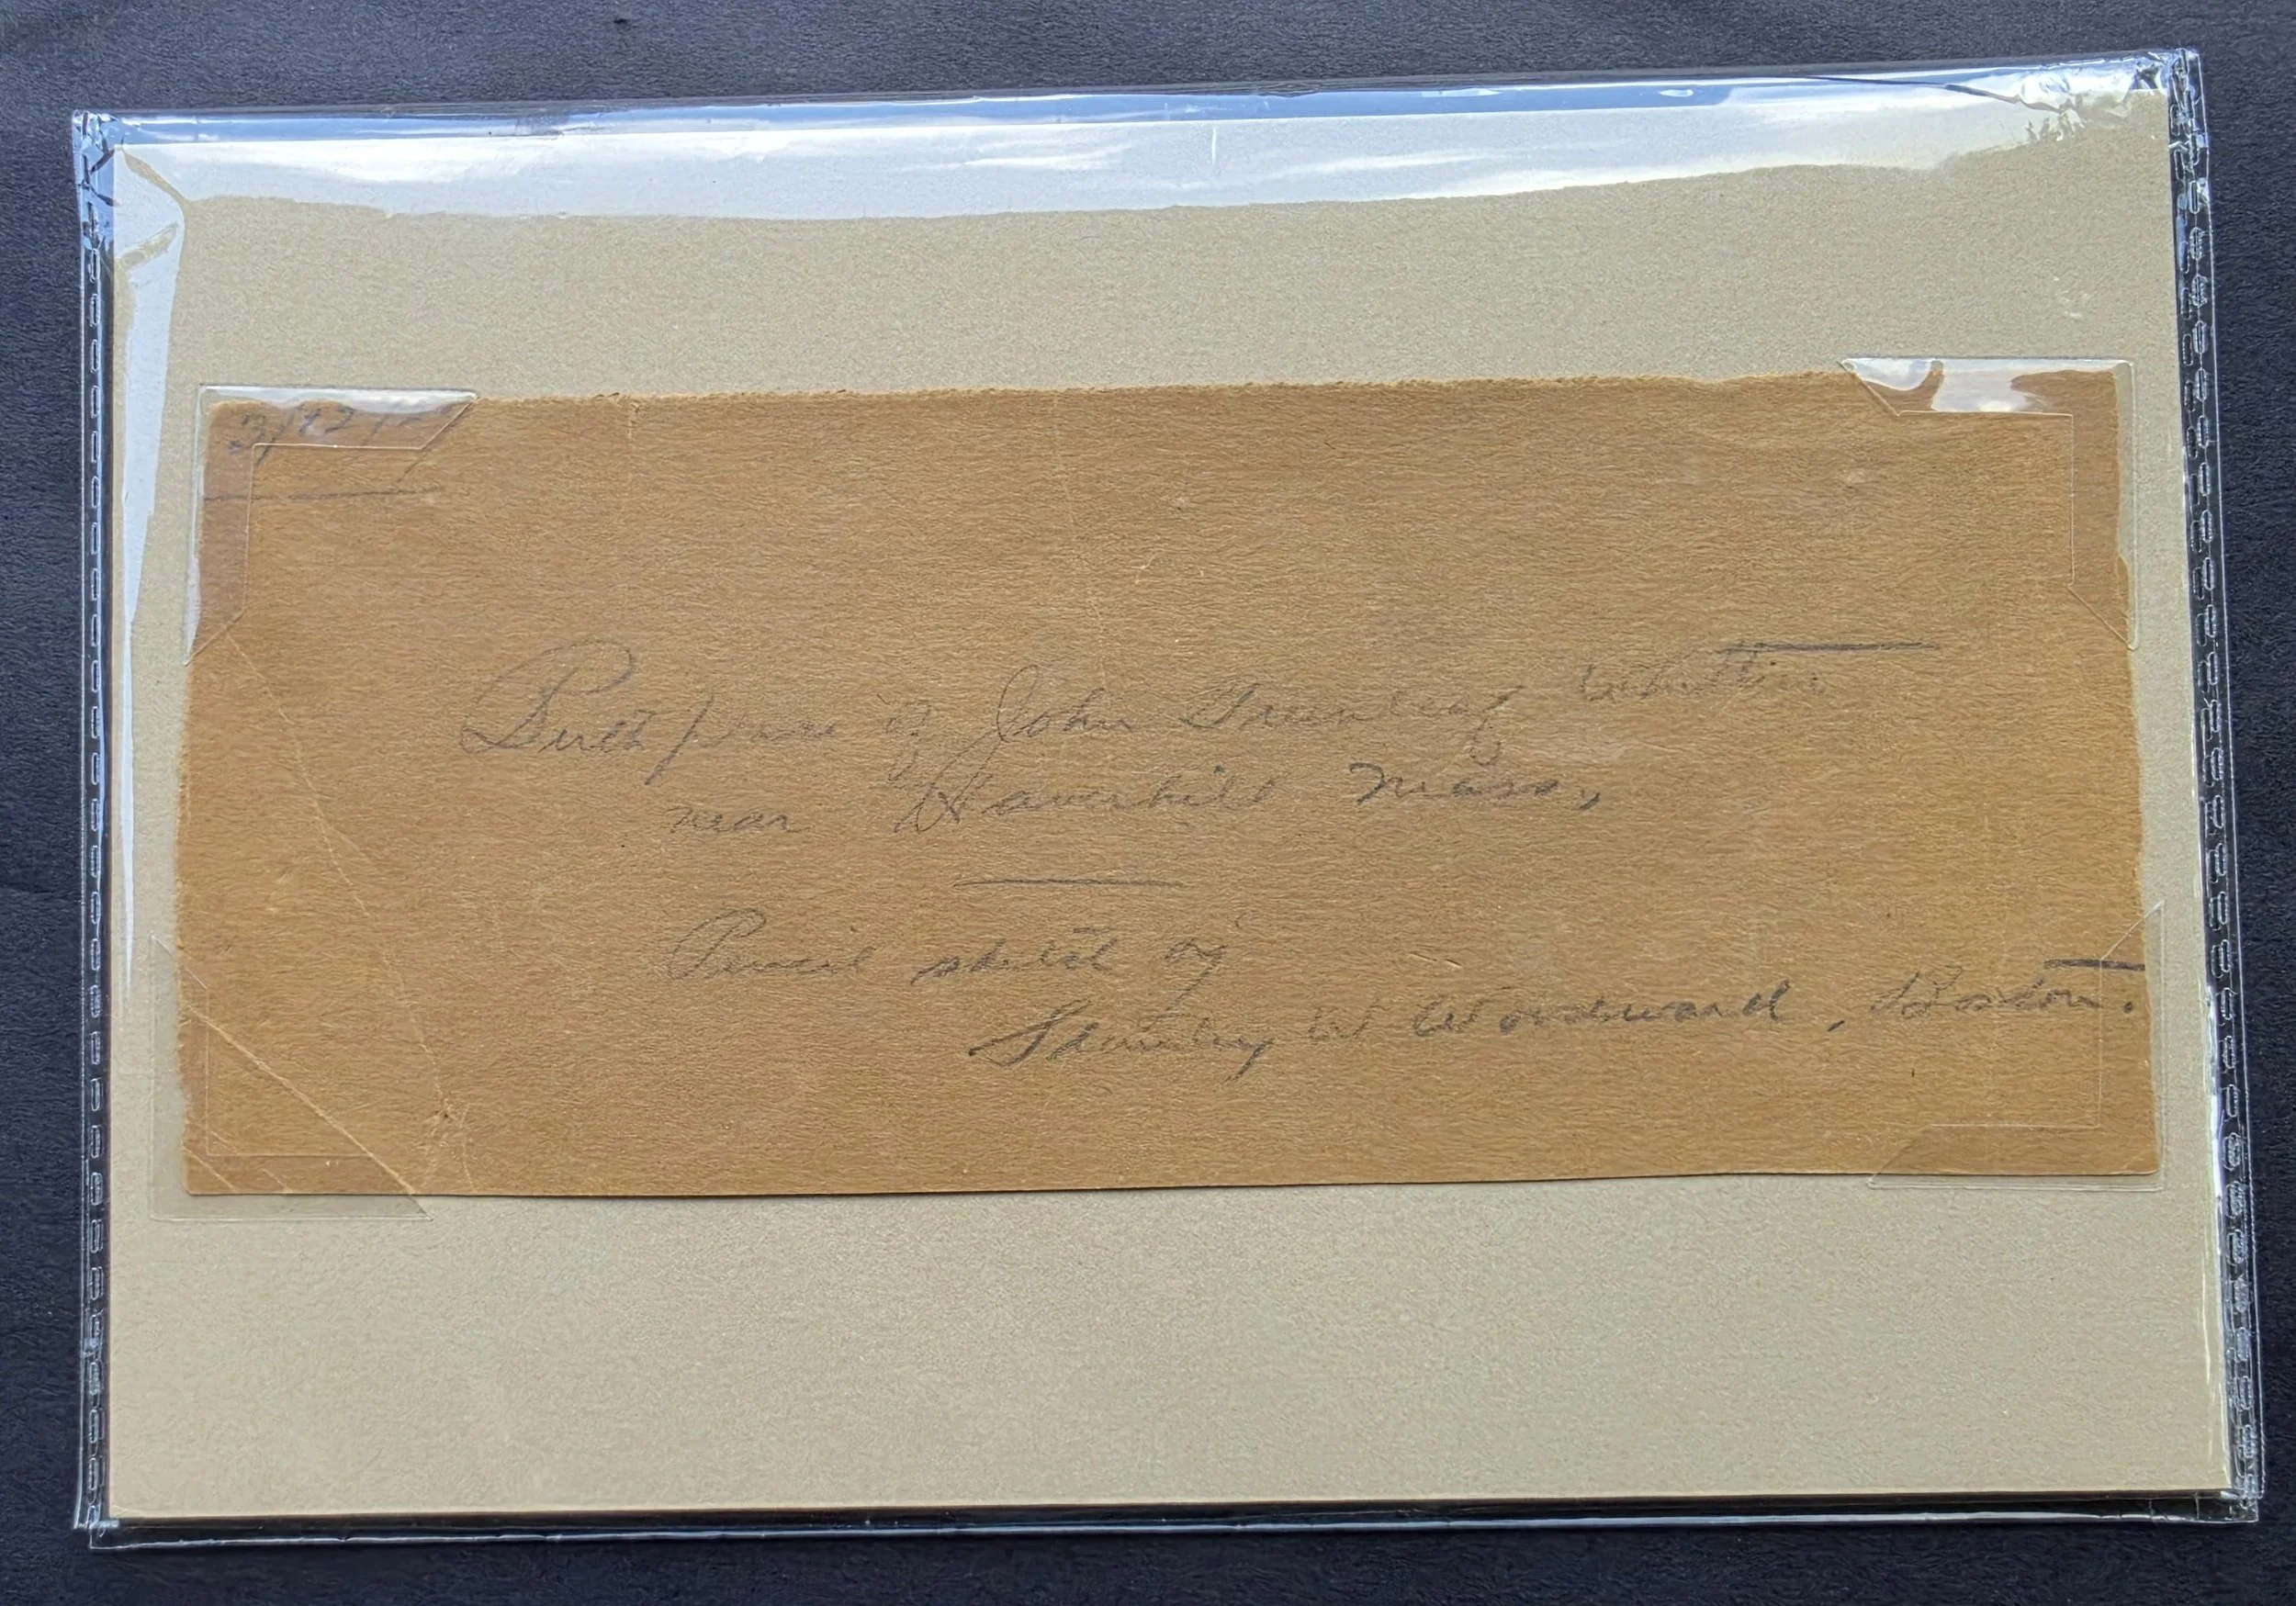 Birth place of John Greenleaf Whittier
near Haverhill Mass.,
Pencil sketch by
Stanley W Woodward, Boston.